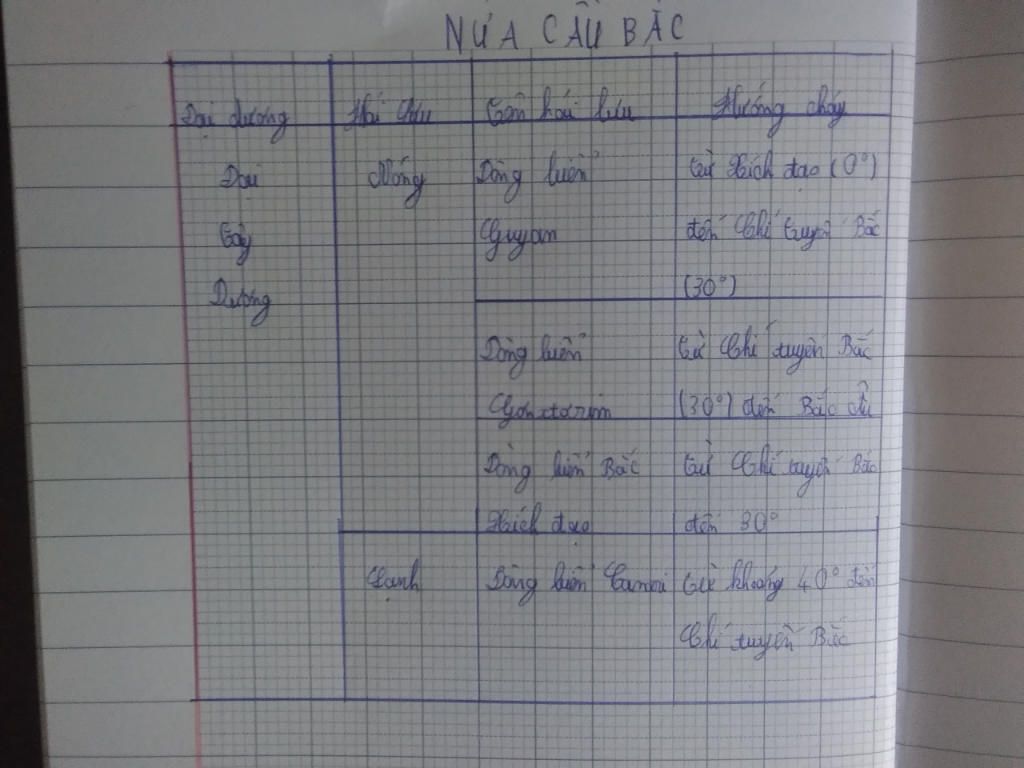 NỬA CẦU BẮC
Đại dương Hải lưu Tên hải lưu Hướng chảy
Đại Nóng Dòng biển từ Xích đạo (0°)
Tây Guyan đến Chí tuyến Bắc
Dương (30°)
Dòng biển từ Chí tuyến Bắc
(30°) đến Bắc
Dòng biển Bắc từ Chí tuyến Bắc
Xích đạo đến 30°
Lạnh Dòng biển từ khoảng 40° đến
Chí tuyến Bắc